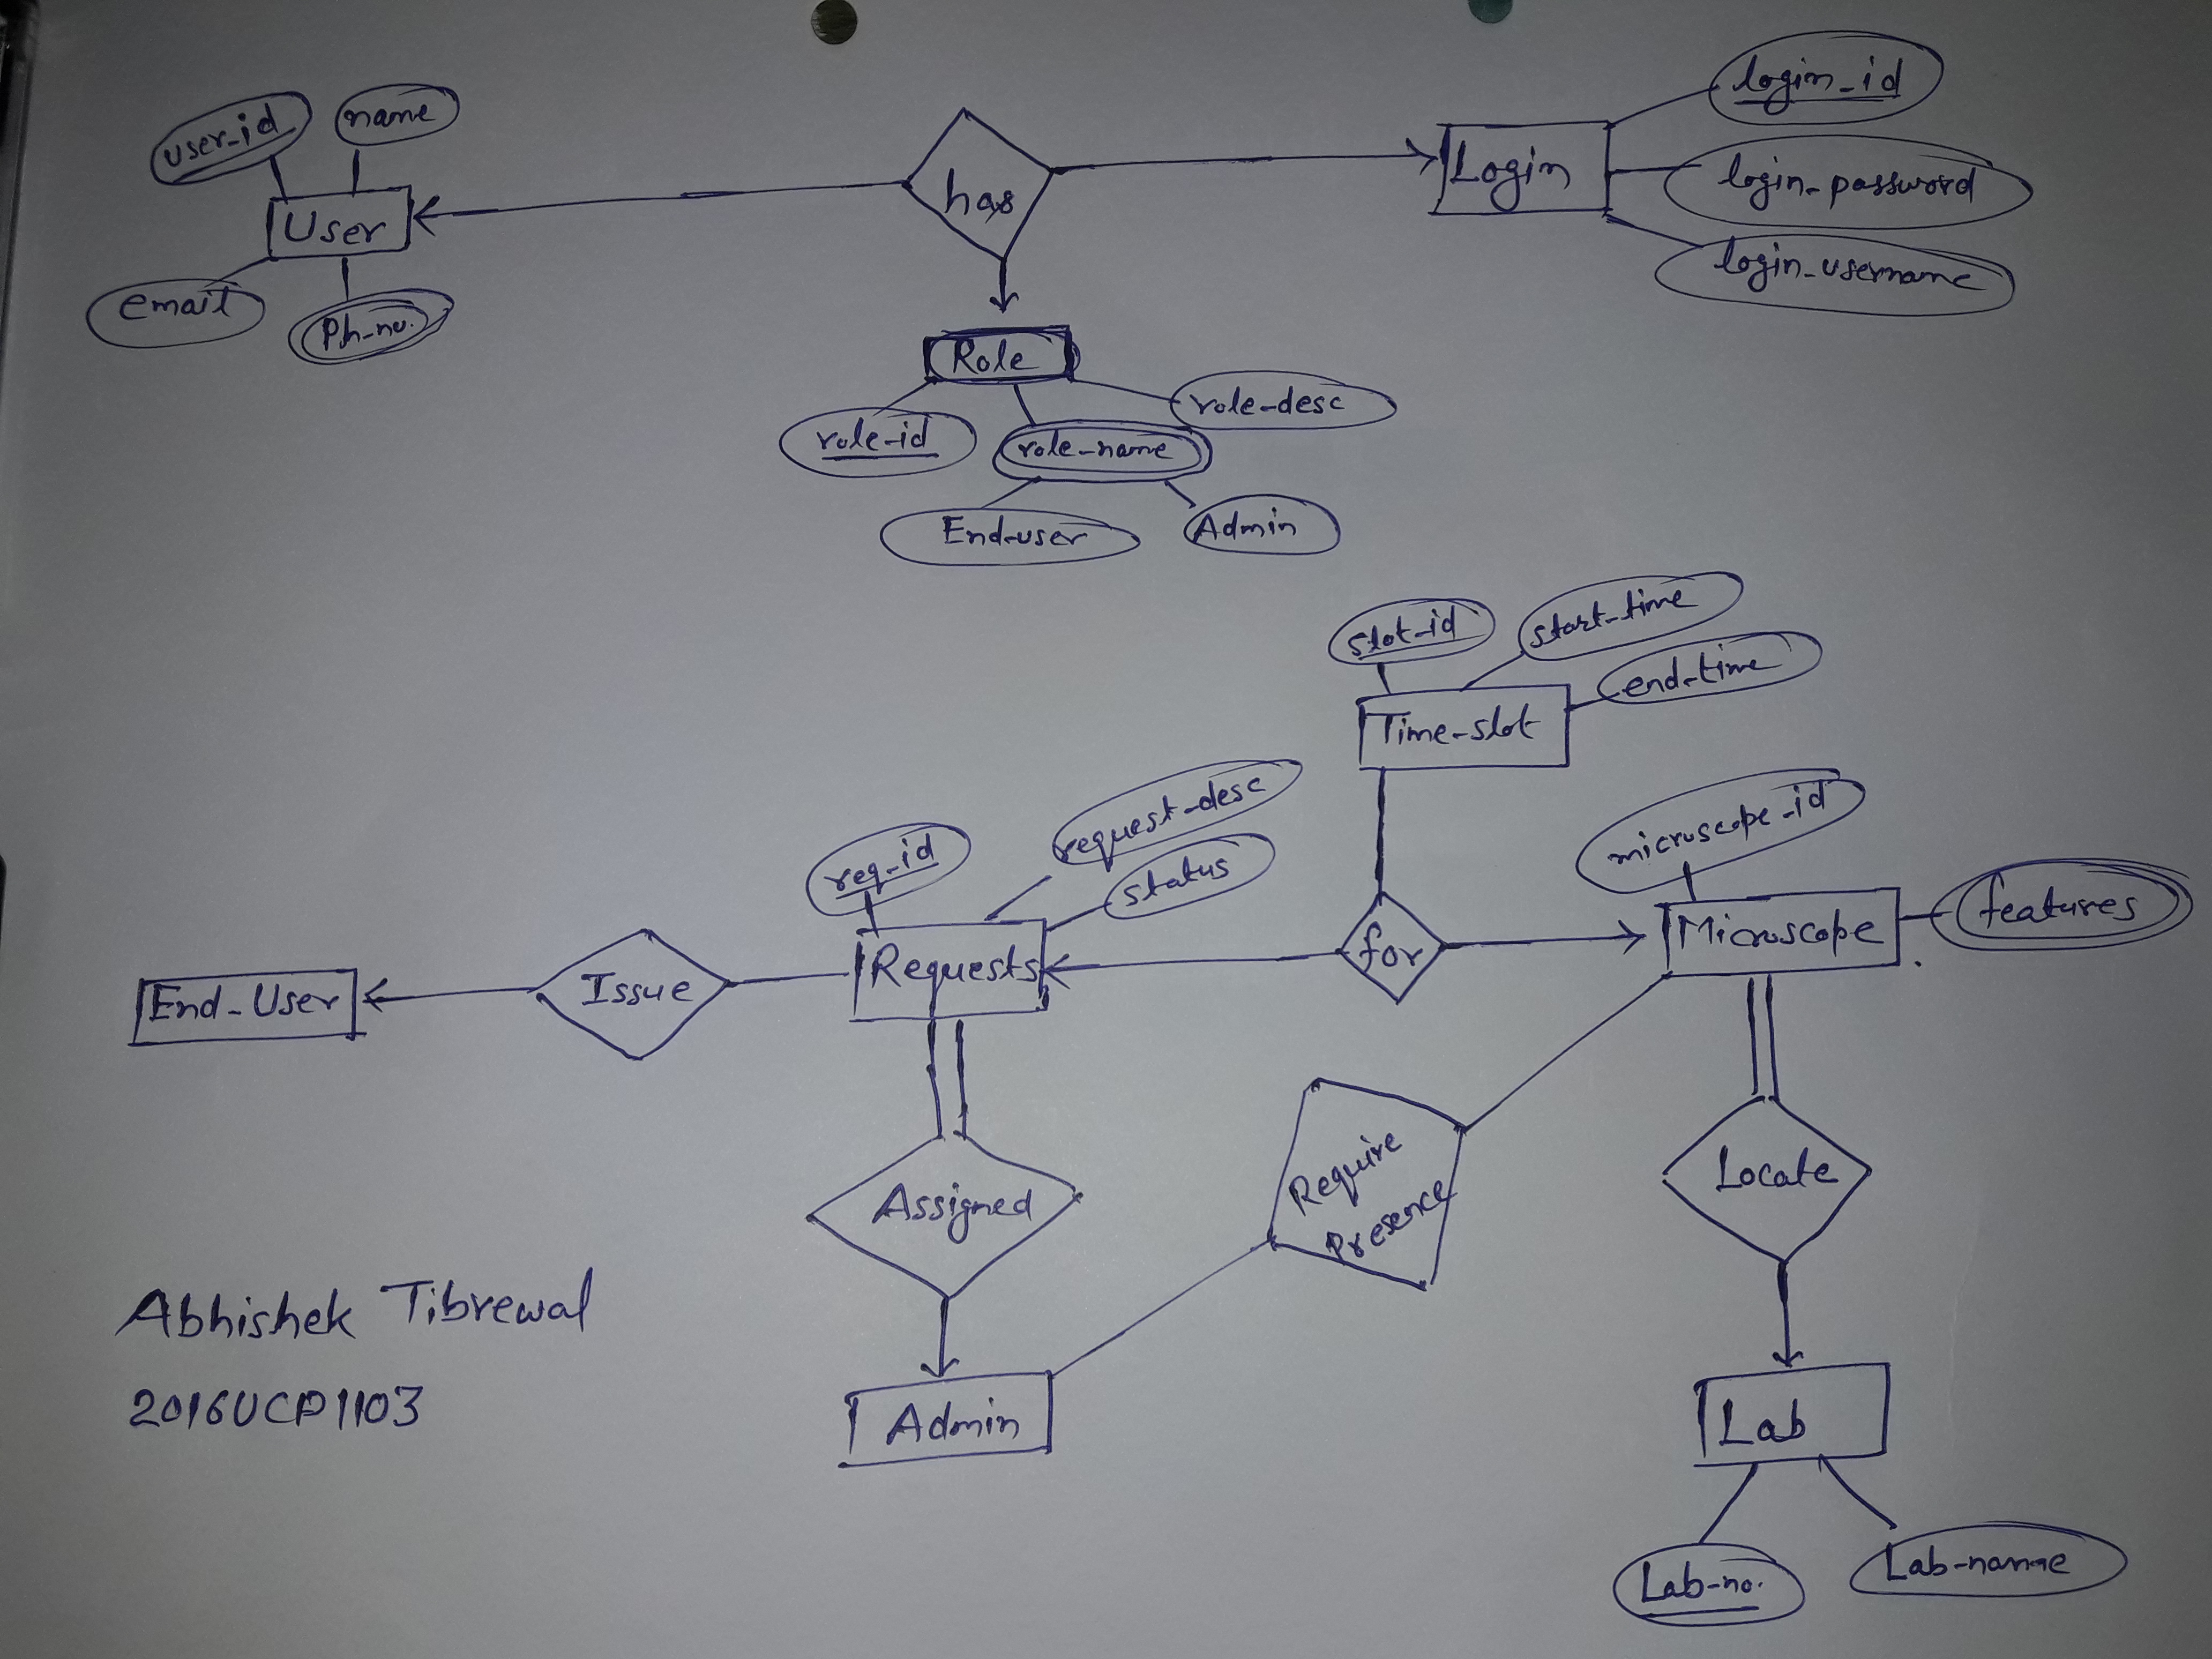 user-id
name
User
email
Ph-no.
has
Login
login-id
login-password
login-username
Role
role-id
role-name
role-desc
End-user
Admin
slot-id
start-time
end-time
Time-slot
req-id
request-desc
status
microscope-id
features
End-User
Issue
Requests
for
Microscope
Assigned
Require
Presence
Locate
Admin
Lab
Lab-no.
Lab-name
Abhishek Tibrewal
2016UCP1103